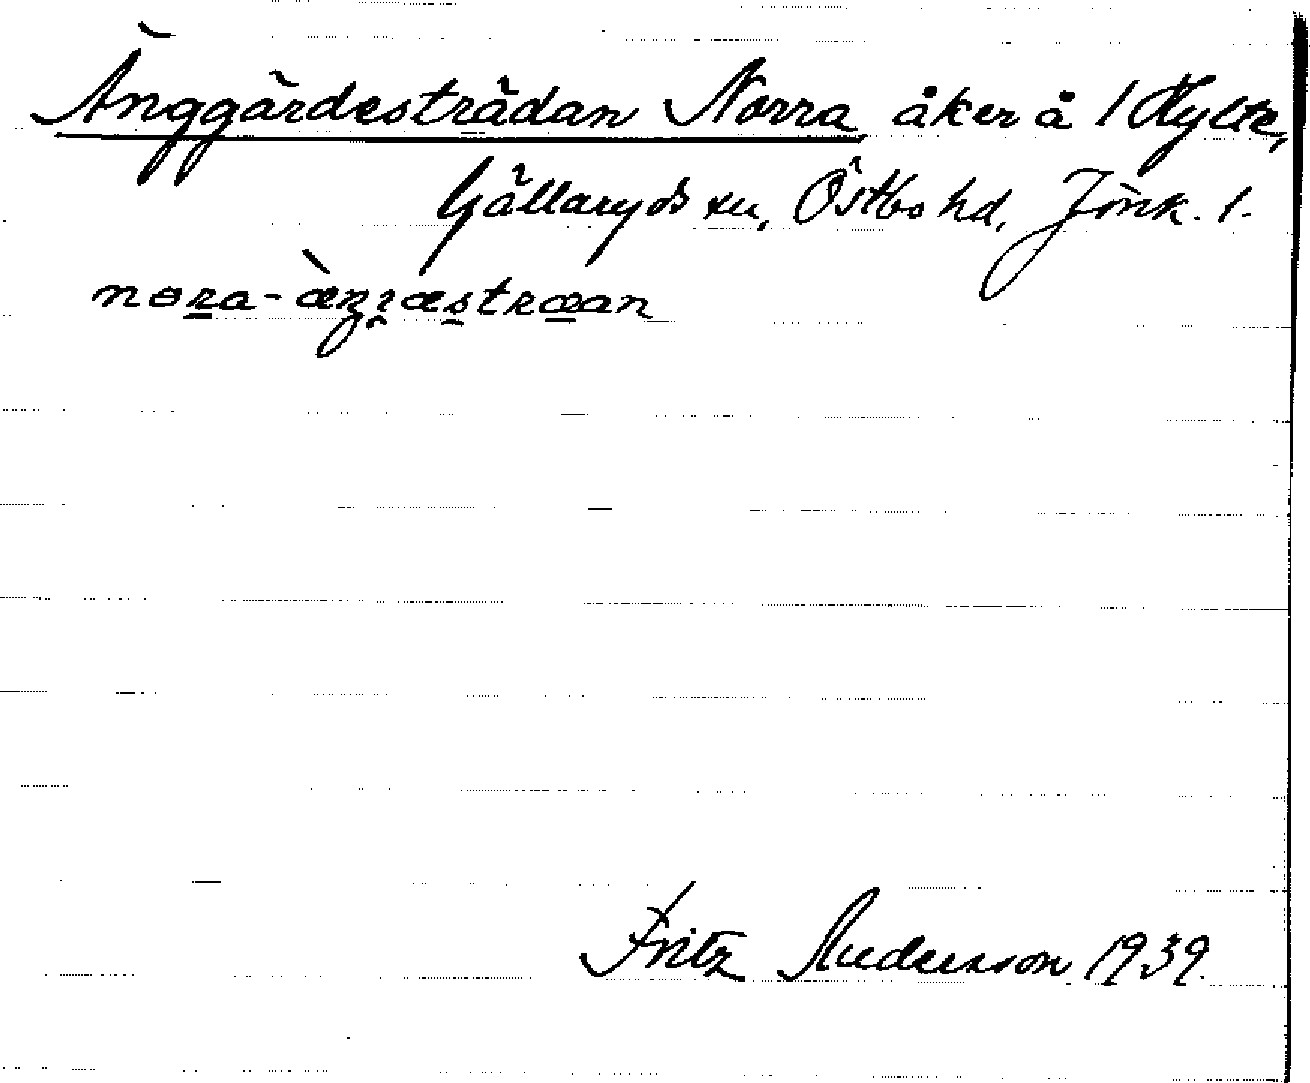 Änggärdesträdan Norra åker å 1 Hylte,
Gällaryds sn, Östbo hd, Jönk. l.
nɵra-æŋɹæstræan
Fritz Andersson 1939.